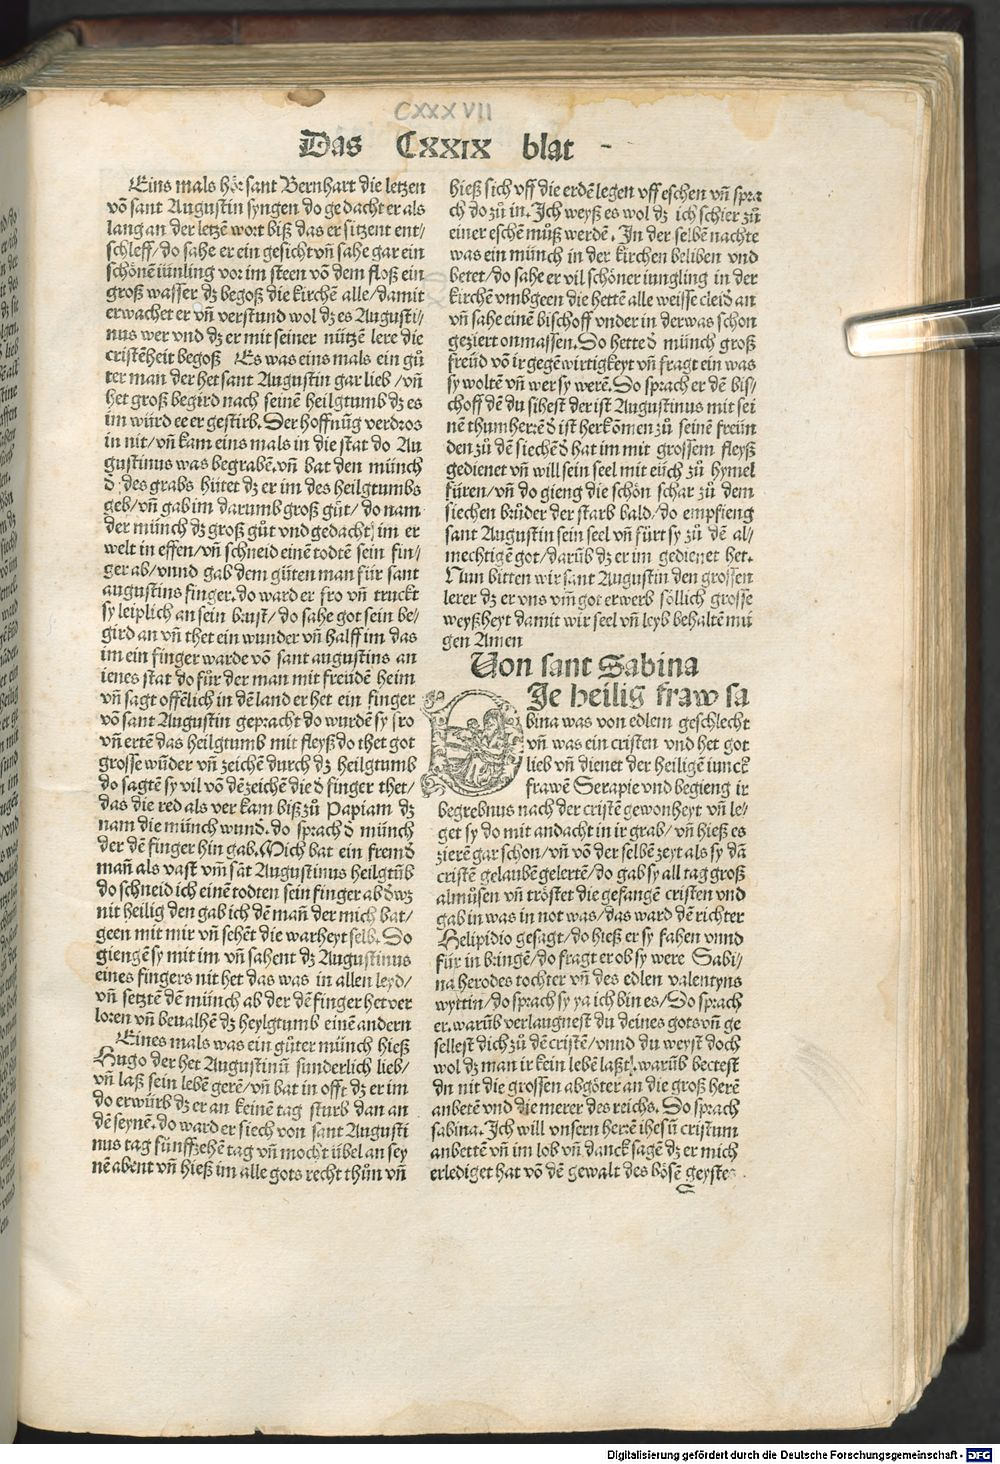 CXXXVII
Das CXXIX blat
Eins mals hör sant Bernhart die letzen
võ sant Augustin syngen do gedacht er als
lang an der letzẽ wort biß das er sitzent ent/
schleff/do sahe er ein gesicht vñ sahe gar ein
schönẽ iünling vor im steen võ dem floß ein
groß wasser dz begoß die kirchẽ alle/damit
erwachet er vñ verstund wol dz es Augusti/
nus wer vnd dz er mit seiner nützẽ lere die
cristẽheit begoß Es was eins mals ein gů
ter man der het sant Augustin gar lieb/vñ
het groß begird nach seinẽ heilgtumb dz es
im würd ee er gestirb. Der hoffnũg verdros
in nit/vñ kam eins mals in die stat do Au
gustinus was begrabẽ.vñ bat den münch
d des grabs hütet dz er im des heilgtumbs
geb/vñ gab im darumb groß gůt/do nam
der münch dz groß gůt vnd gedacht im er
welt in effen/vñ schneid einẽ todtẽ sein fin/
ger ab/vnnd gab dem gůten man für sant
augustins finger.do ward er fro vñ truckt
sy leiplich an sein brust/do sahe got sein be/
gird an vñ thet ein wunder vñ halff im das
im ein finger warde võ sant augustins an
ienes stat do für der man mit freüdẽ heim
vñ sagt offẽlich in dẽ land er het ein finger
võ sant Augustin gepracht do wurdẽ sy fro
vñ ertẽ das heilgtumb mit fleyß do thet got
grosse wũder vñ zeichẽ durch dz heilgtumb
do sagtẽ sy vil võ dẽ zeichẽ die d finger thet/
das die red als ver kam biß zů Papiam dz
nam die münch wund.do sprach d münch
der dẽ finger hin gab.Mich bat ein fremd
mañ als vast vm̃ sãt Augustinus heilgtũb
do schneid ich einẽ todten sein finger ab d wz
nit heilig den gab ich dẽ mañ der mich bat/
geen mit mir vñ sehẽt die warheyt selb. So
giengẽ sy mit im vñ sahent dz Augustinus
eines fingers nit het das was in allen leyd/
vñ setztẽ dẽ münch ab der dẽ finger het ver
loren vñ beualhẽ dz heylgtumb einẽ andern
Eines mals was ein gůter münch hieß
Hugo der het Augustinũ sunderlich lieb/
vñ laß sein lebẽ gerẽ/vñ bat in offt dz er im
do erwürb dz er an keinẽ tag sturb dan an
dẽ seynẽ.do ward er siech von sant Augusti
nus tag fünffzehẽ tag vñ mocht übel an sey
nẽ abent vñ hieß im alle gots recht thůn vñ
hieß sich vff die erdẽ legen vff eschen vñ spra
ch do zů in.Ich weyß es wol dz ich schier zů
einer eschẽ můß werdẽ. In der selbẽ nachte
was ein münch in der kirchen beliben vnd
betet/do sahe er vil schöner iungling in der
kirchẽ vmbgeen die hettẽ alle weisse cleid an
vñ sahe einẽ bischoff vnder in der was schon
geziert on massen.So hette d münch groß
freüd võ ir gegẽwirtigkeyt vñ fragt ein was
sy woltẽ vñ wer sy werẽ.So sprach er dẽ bis/
choff dẽ du sihest der ist Augustinus mit sei
nẽ thumherrẽ d ist herkõmen zů seinẽ freün
den zů dẽ siechẽ d hat im mit grossem fleyß
gedienet vñ will sein seel mit eüch zů hymel
füren/vñ do gieng die schön schar zů dem
siechen brůder der starb bald/do empfieng
sant Augustin sein seel vñ fürt sy zů dẽ al/
mechtigẽ got/darũb dz er im gedienet het.
Nun bitten wir sant Augustin den grossen
lerer dz er vns vm̃ got erwerb söllich grosse
weyßheyt damit wir seel vñ leyb behaltẽ mü
gen Amen
Von sant Sabina
Die heilig fraw sa
bina was von edlem geschlecht
vñ was ein cristen vnd het got
lieb vñ dienet der heiligẽ iunck
frawẽ Serapie vnd begieng ir
begrebnus nach der cristẽ gewonheyt vñ le/
get sy do mit andacht in ir grab/vñ hieß es
zierẽ gar schon/vñ võ der selbẽ zeyt als sy dã
cristẽ gelaubẽ gelertẽ/do gab sy all tag groß
almůsen vñ tröstet die gefangẽ cristen vnd
gab in was in not was/das ward dẽ richter
Helipidio gesagt/do hieß er sy fahen vnnd
für in bringẽ/do fragt er ob sy were Sabi/
na herodes tochter vñ des edlen valentyns
wyttin/do sprach sy ya ich bin es/So sprach
er.warũb verlaugnest du deines gots vñ ge
sellest dich zů dẽ cristẽ/vnnd du weyst doch
wol dz man ir kein lebẽ laßt.warũb bectest
du nit die grossen abgöter an die groß herẽ
anbetẽ vnd die merer des reichs. So sprach
sabina.Ich will vnsern herrẽ ihesũ cristum
anbettẽ vñ im lob vñ danck sagẽ dz er mich
erlediget hat võ dẽ gewalt des bösẽ geystes
Digitalisierung gefördert durch die Deutsche Forschungsgemeinschaft - DFG